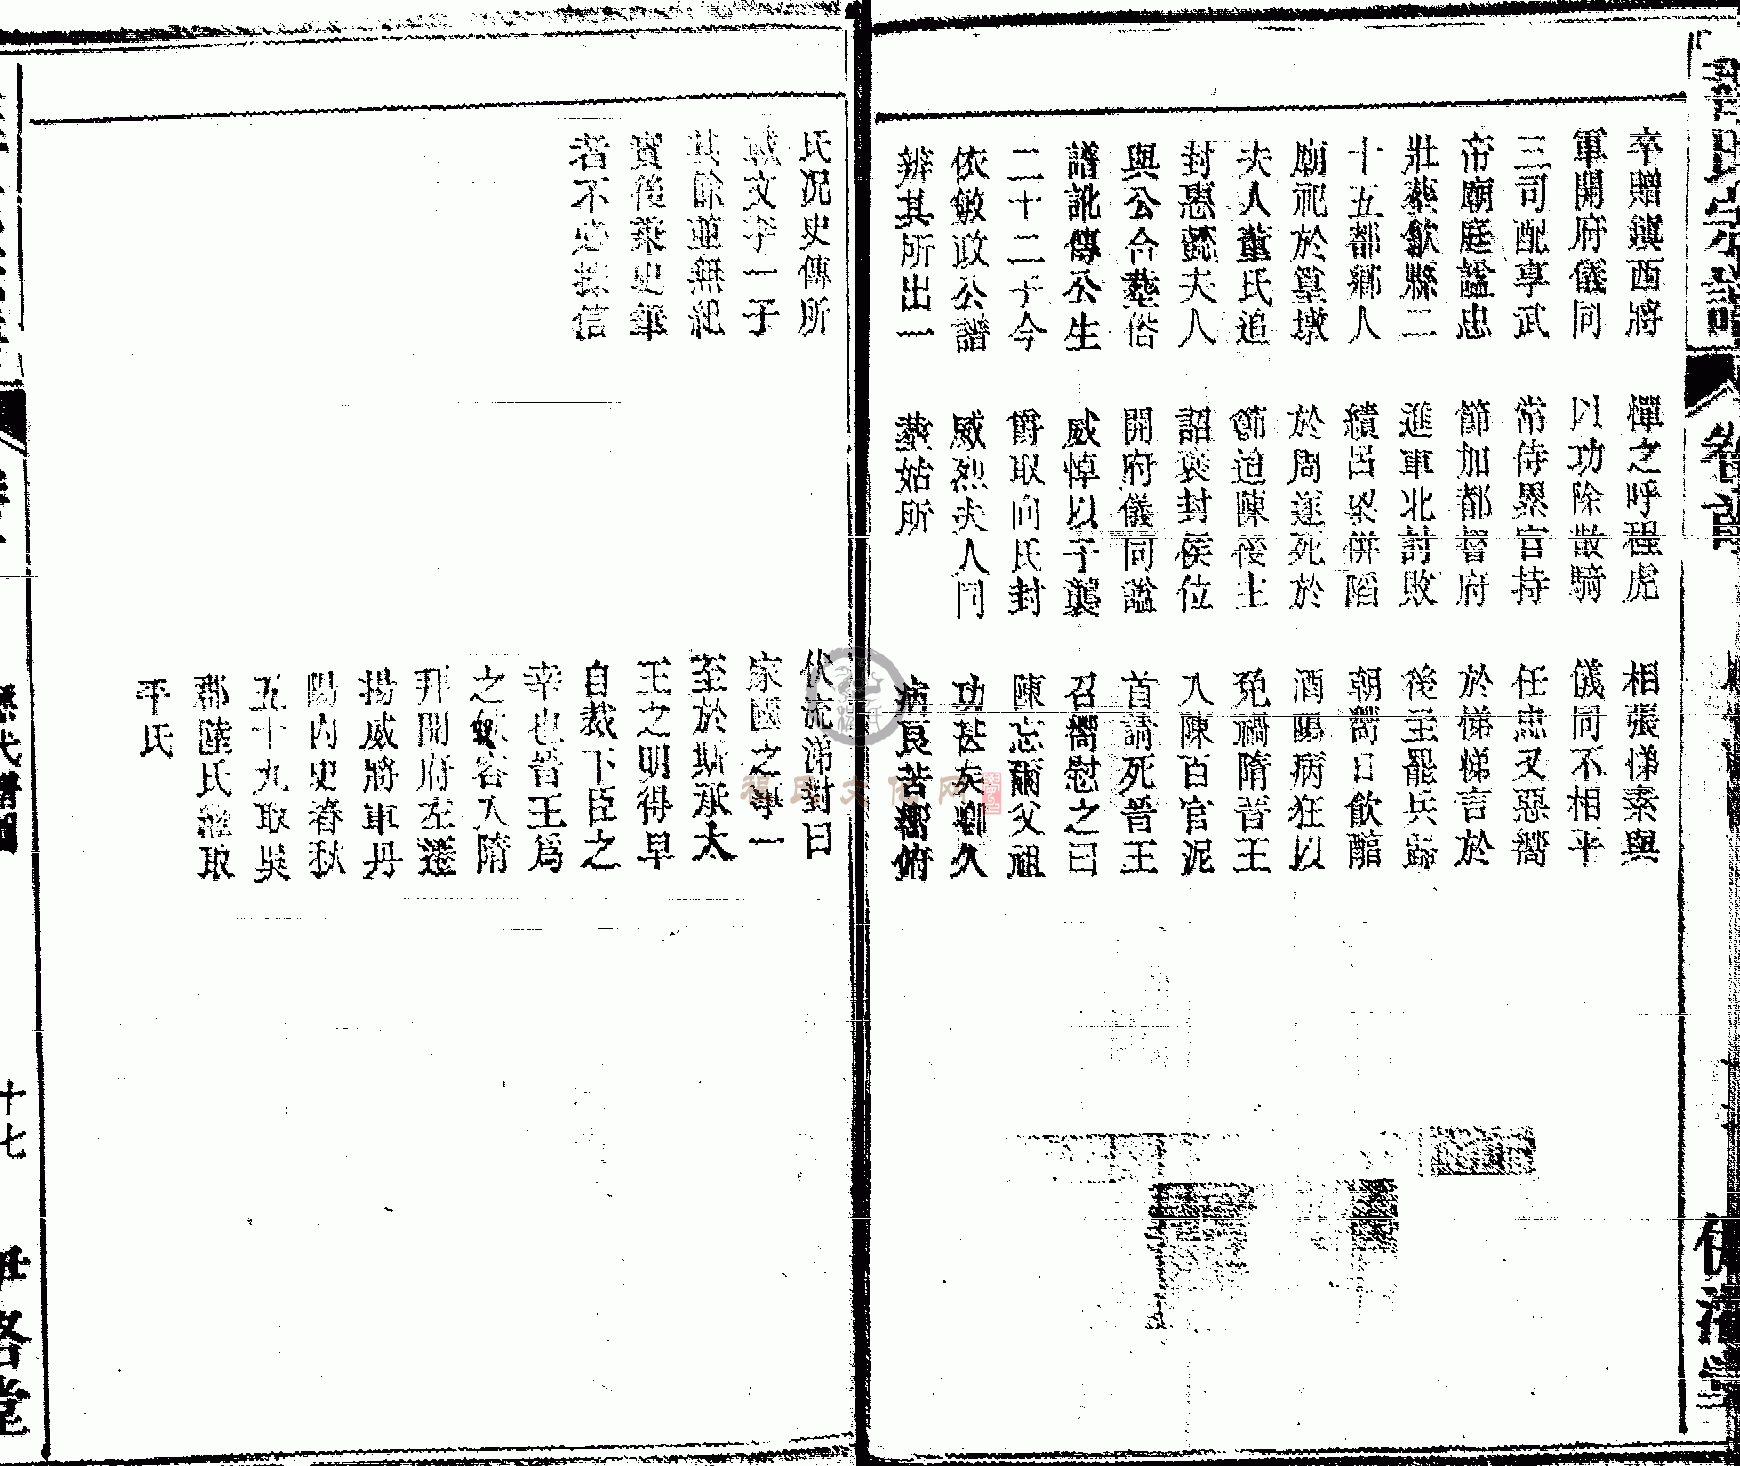 卒贈鎮西將
軍開府儀同
三司配享武
帝廟庭諡忠
壯葬歙縣二
十五都鄉人
廟祀於篁墩
夫人董氏追
封惠懿夫人
與公合葬俗
譜訛傳公生
二十二子今
依敏政公譜
辨其所出一
氏况史傳所
載文季一子
其餘並無紀
實後業史鑑
者不必據信
禪之呼程虎
以功除散騎
常侍累官持
節加都督府
進軍北討敗
績呂梁併陷
於周遂死於
節追陳後主
詔褒封侯位
開府儀同諡
威悼以子襲
爵取向氏封
威烈夫人同
葬姑所
相張悌素與
儀同不相平
任忠又惡嚮
於悌悌言於
後主罷兵歸
朝嚮日飲醕
酒陽病狂以
免禍隋晉王
入陳百官泥
首請死晉王
召嚮慰之曰
陳忘爾父祖
功甚矣卿久
病良苦嚮俯
伏流涕對曰
家國之事一
至於斯承太
王之明得早
自裁下臣之
幸也晉王爲
之歛容入隋
拜開府左遷
揚威將軍丹
陽內史春秋
五十九取吳
郡陸氏繼取
平氏
卷首
歷代譜圖
十七